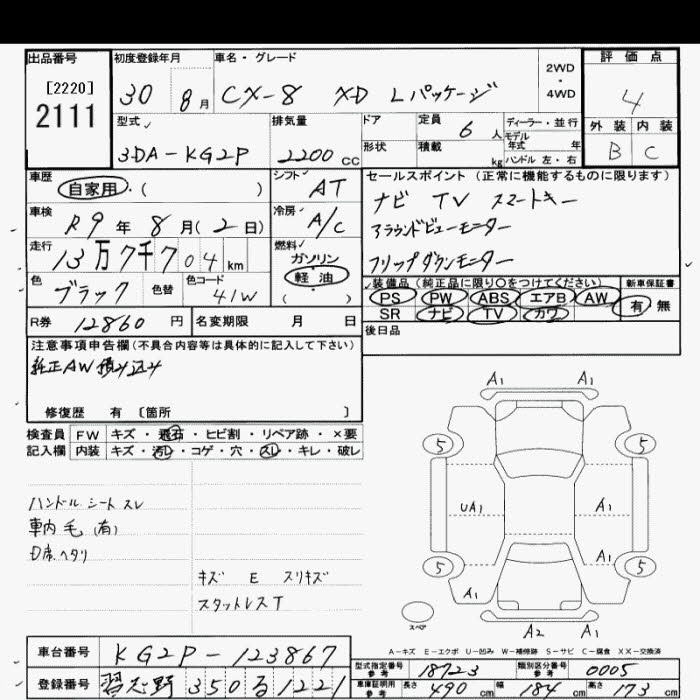 出品番号 初度登録年月 車名・グレード 評価点
[2220] 2111
30 8月 CX-8 XD Lパッケージ 2WD・4WD 4
型式 排気量 ドア 定員 6人 ディーラー・並行 外装 内装
3DA-KG2P 2200cc 形状 積載 kg モデル年式 年 ハンドル 左・右 B C
車歴 自家用・( ) シフト AT セールスポイント(正常に機能するものに限ります)
車検 R9年8月(2日) 冷房 A/C ナビ TV スマートキー
アラウンドビューモニター
走行 13万7千704km 燃料 ガソリン 軽油 ( ) フリップダウンモニター
色 ブラック 色替 色コード 41W 装備品(純正品に限り○をつけてください) 新車保証書
PS PW ABS エアB AW 有 無
R券 12860円 名変期限 月 日 SR ナビ TV カワ
後日品
注意事項申告欄(不具合内容等は具体的に記入して下さい)
純正AW積み込み
修復歴 有〔箇所 〕
検査員 FW キズ・飛石・ヒビ割・リペア跡・×要
記入欄 内装 キズ・汚レ・コゲ・穴・スレ・キレ・破レ
ハンドル シート スレ
車内 毛(有)
D席ヘタリ
キズ E スリキズ
スタットレスT
A1 A1
5 5
UA1 A1
A1
5 5
A1
スペア A2 A1
A-キズ E-エクボ U-凹み W-補修跡 S-サビ C-腐食 XX-交換済
車台番号 KG2P-123867
登録番号 習志野 350 る 1221
型式指定番号 参考 18723 類別区分番号 参考 0005
車庫証明用 参考 長さ 490cm 幅 184cm 高さ 173cm